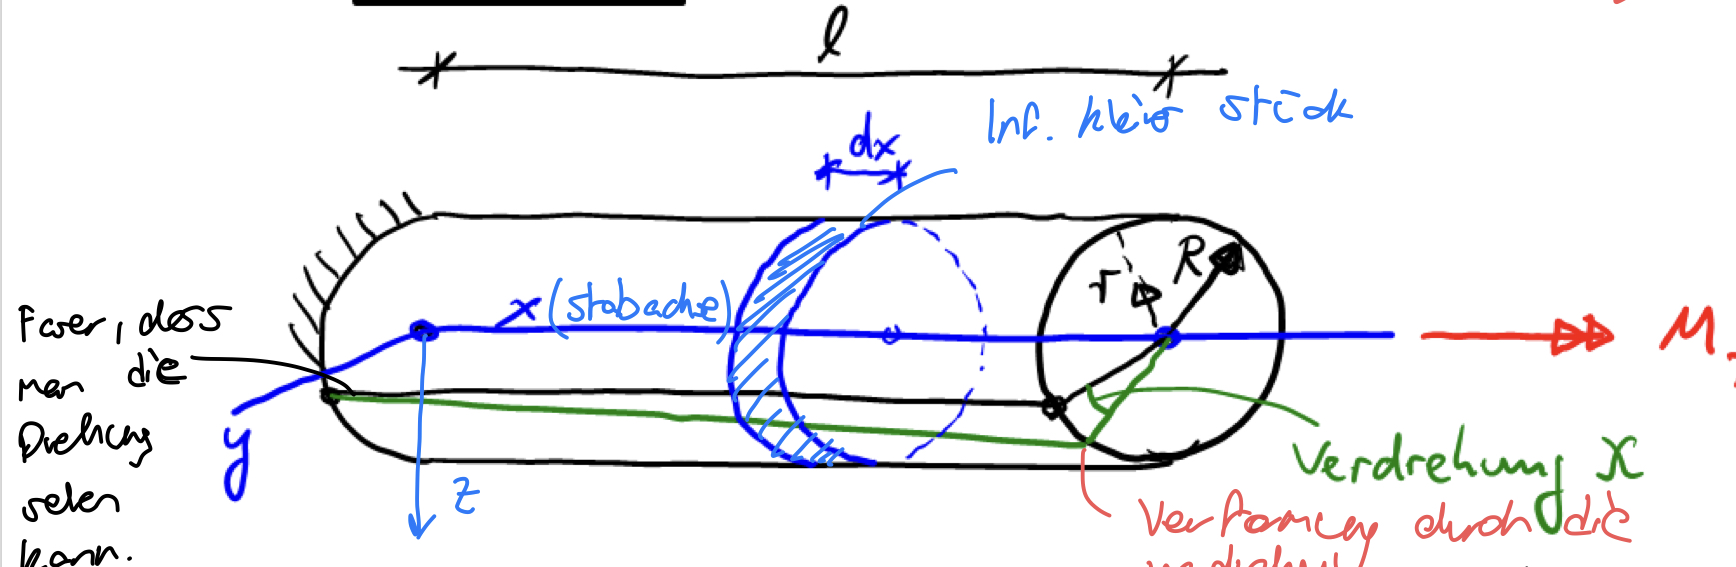 l
Inf. kleis stück
dx
R
r
x (stabachse)
Faser, dass
man die
Drehung
sehen
kann.
y
z
M
Verdrehung ϰ
Verformung durch die